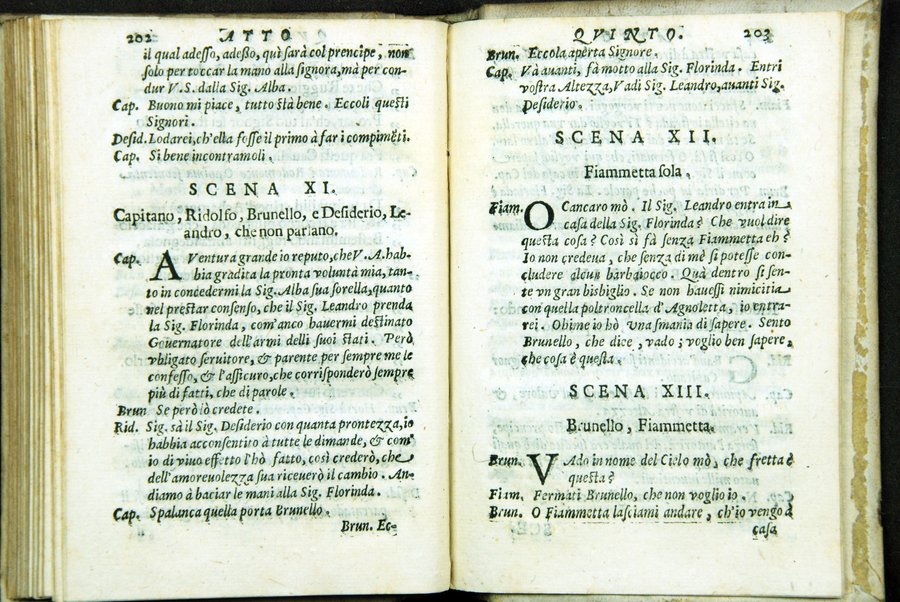 202 ATTO
il qual adesso, adeßo, quì sarà col prencipe, non
solo per toccar la mano alla signora, mà per con-
dur V.S. dalla Sig. Alba.
Cap. Buono mi piace, tutto stà bene. Eccoli questi
Signori.
Desid. Lodarei, ch'ella fosse il primo à far i compimẽti.
Cap. Sì bene incontramoli.
SCENA XI.
Capitano, Ridolfo, Brunello, e Desiderio, Le-
andro, che non parlano.
Cap. AVentura grande io reputo, che V. A. hab-
bia gradita la pronta voluntà mia, tan-
to in concedermi la Sig. Alba sua sorella, quanto
nel prestar consenso, che il Sig. Leandro prenda
la Sig. Florinda, com'anco hauermi destinato
Gouernatore dell'armi delli suoi stati. Però
vbligato seruitore, & parente per sempre me le
confesso, & l'assicuro, che corrisponderò sempre
più di fatti, che di parole.
Brun Se però lo credete.
Rid. Sig. sà il Sig. Desiderio con quanta prontezza, io
habbia acconsentito à tutte le dimande, & com'
io di viuo effetto l'hò fatto, così crederò, che
dell'amoreuolezza sua riceuerò il cambio. An-
diamo à baciar le mani alla Sig. Florinda.
Cap. Spalanca quella porta Brunello.
Brun. Ec-
QVINTO. 203
Brun. Eccola aperta Signore.
Cap. Và auanti, fà motto alla Sig. Florinda. Entri
vostra Altezza, Vadi Sig. Leandro, auanti Sig.
Desiderio.
SCENA XII.
Fiammetta sola.
Fiam. OCancaro mò. Il Sig. Leandro entra in
casa della Sig. Florinda? Che vuol dire
questa cosa? Così si fà senza Fiammetta eh?
Io non credeua, che senza di mè si potesse con-
cludere alcun barbaiocco. Quà dentro si sen-
te vn gran bisbiglio. Se non hauessi nimicitia
con quella poltroncella d'Agnoletta, io entra-
rei. Ohime io hò vna smania di sapere. Sento
Brunello, che dice, vado; voglio ben sapere,
che cosa è questa.
SCENA XIII.
Brunello, Fiammetta.
Brun. VAdo in nome del Cielo mò, che fretta è
questa?
Fiam. Fermati Brunello, che non voglio io.
Brun. O Fiammetta lasciami andare, ch'io vengo à
casa